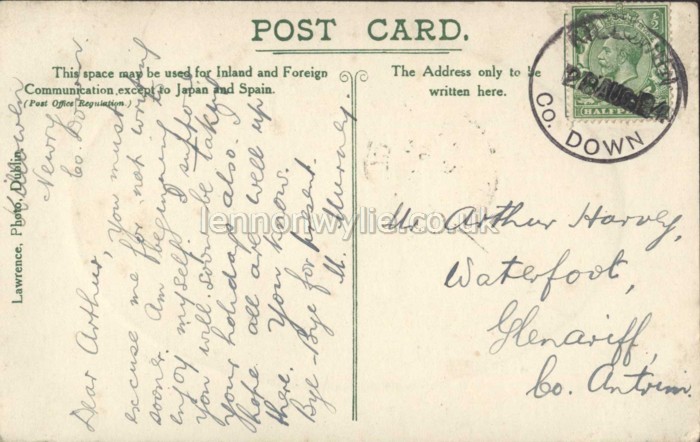 POST CARD.
This space may be used for Inland and Foreign
Communication except to Japan and Spain.
(Post Office Regulation)
The Address only to be
written here.
Lawrence, Photo, Dublin
Newry
Co. Down
Dear Arthur, You must
excuse me for not writing
sooner. Am beginning to
enjoy myself. I suppose
you will soon be taking
your holidays also. I
hope all are well up
there. You know.
Bye-Bye for present.
M. Murney.
Mr Arthur Harvey,
Waterfoot,
Glenariff,
Co. Antrim.
CO. DOWN
HALFPENNY
lennonwylie.co.uk